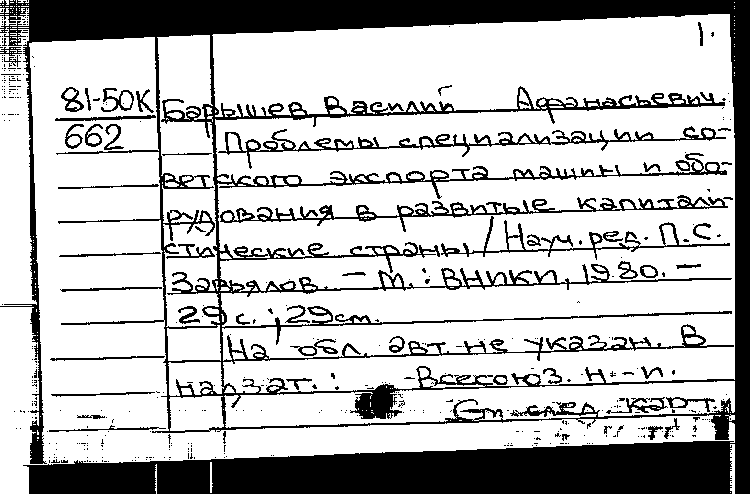 1.
81-50К Барышев, Василий Афанасьевич.
662 Проблемы специализации со-
ветского экспорта машин и обо-
рудования в развитые капитали-
стические страны / Науч. ред. П.С.
Завьялов. — М.: ВНИКИ, 1980. —
29 с.; 29 см.
На обл. авт. не указан. В
надзаг.: Всесоюз. н.-и.
См. след. карт.